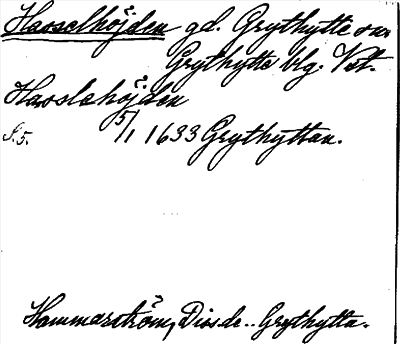 Hasselhöjden gd. Grythytte sn.
Grythytte blg. Vst.
Hasslehöjden
S. 5. 5/1 1633 Grythyttan.
Hammarström, Diss. de .. Grythytta.